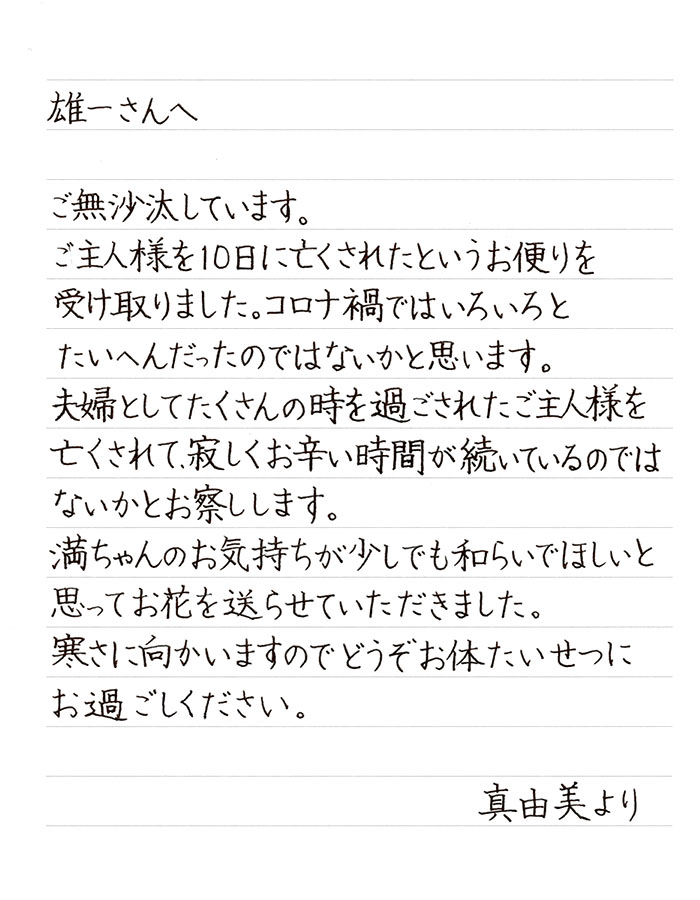 雄一さんへ
ご無沙汰しています。
ご主人様を10日に亡くされたというお便りを
受け取りました。コロナ禍ではいろいろと
たいへんだったのではないかと思います。
夫婦としてたくさんの時を過ごされたご主人様を
亡くされて、寂しくお辛い時間が続いているのでは
ないかとお察しします。
満ちゃんのお気持ちが少しでも和らいでほしいと
思ってお花を送らせていただきました。
寒さに向かいますのでどうぞお体たいせつに
お過ごしください。
真由美より